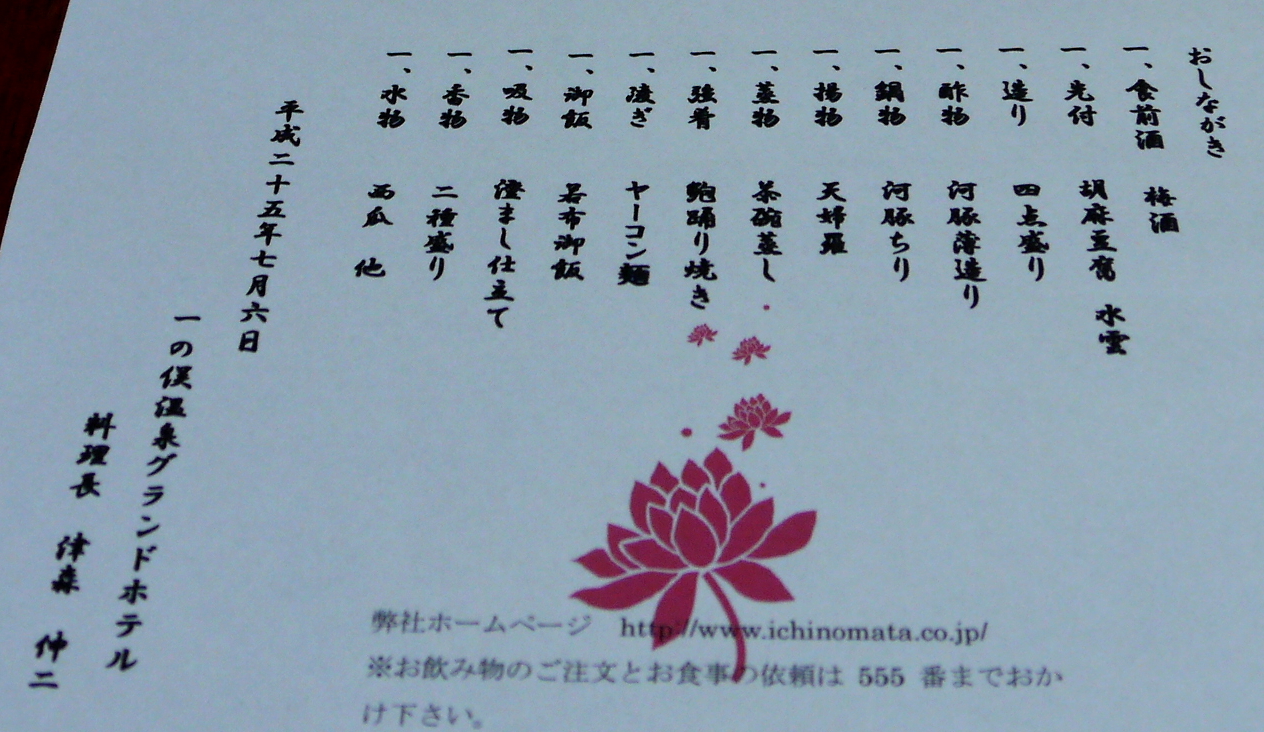 おしながき
一、食前酒　梅酒
一、先付　胡麻豆腐　水雲
一、造り　四点盛り
一、酢物　河豚薄造り
一、鍋物　河豚ちり
一、揚物　天婦羅
一、蒸物　茶碗蒸し
一、強肴　鮑踊り焼き
一、凌ぎ　ヤーコン麺
一、御飯　若布御飯
一、吸物　澄まし仕立て
一、香物　二種盛り
一、水物　西瓜　他
平成二十五年七月六日
一の俣温泉グランドホテル
料理長　津森　仲二
弊社ホームページ　http://www.ichinomata.co.jp/
※お飲み物のご注文とお食事の依頼は 555 番までおか
け下さい。